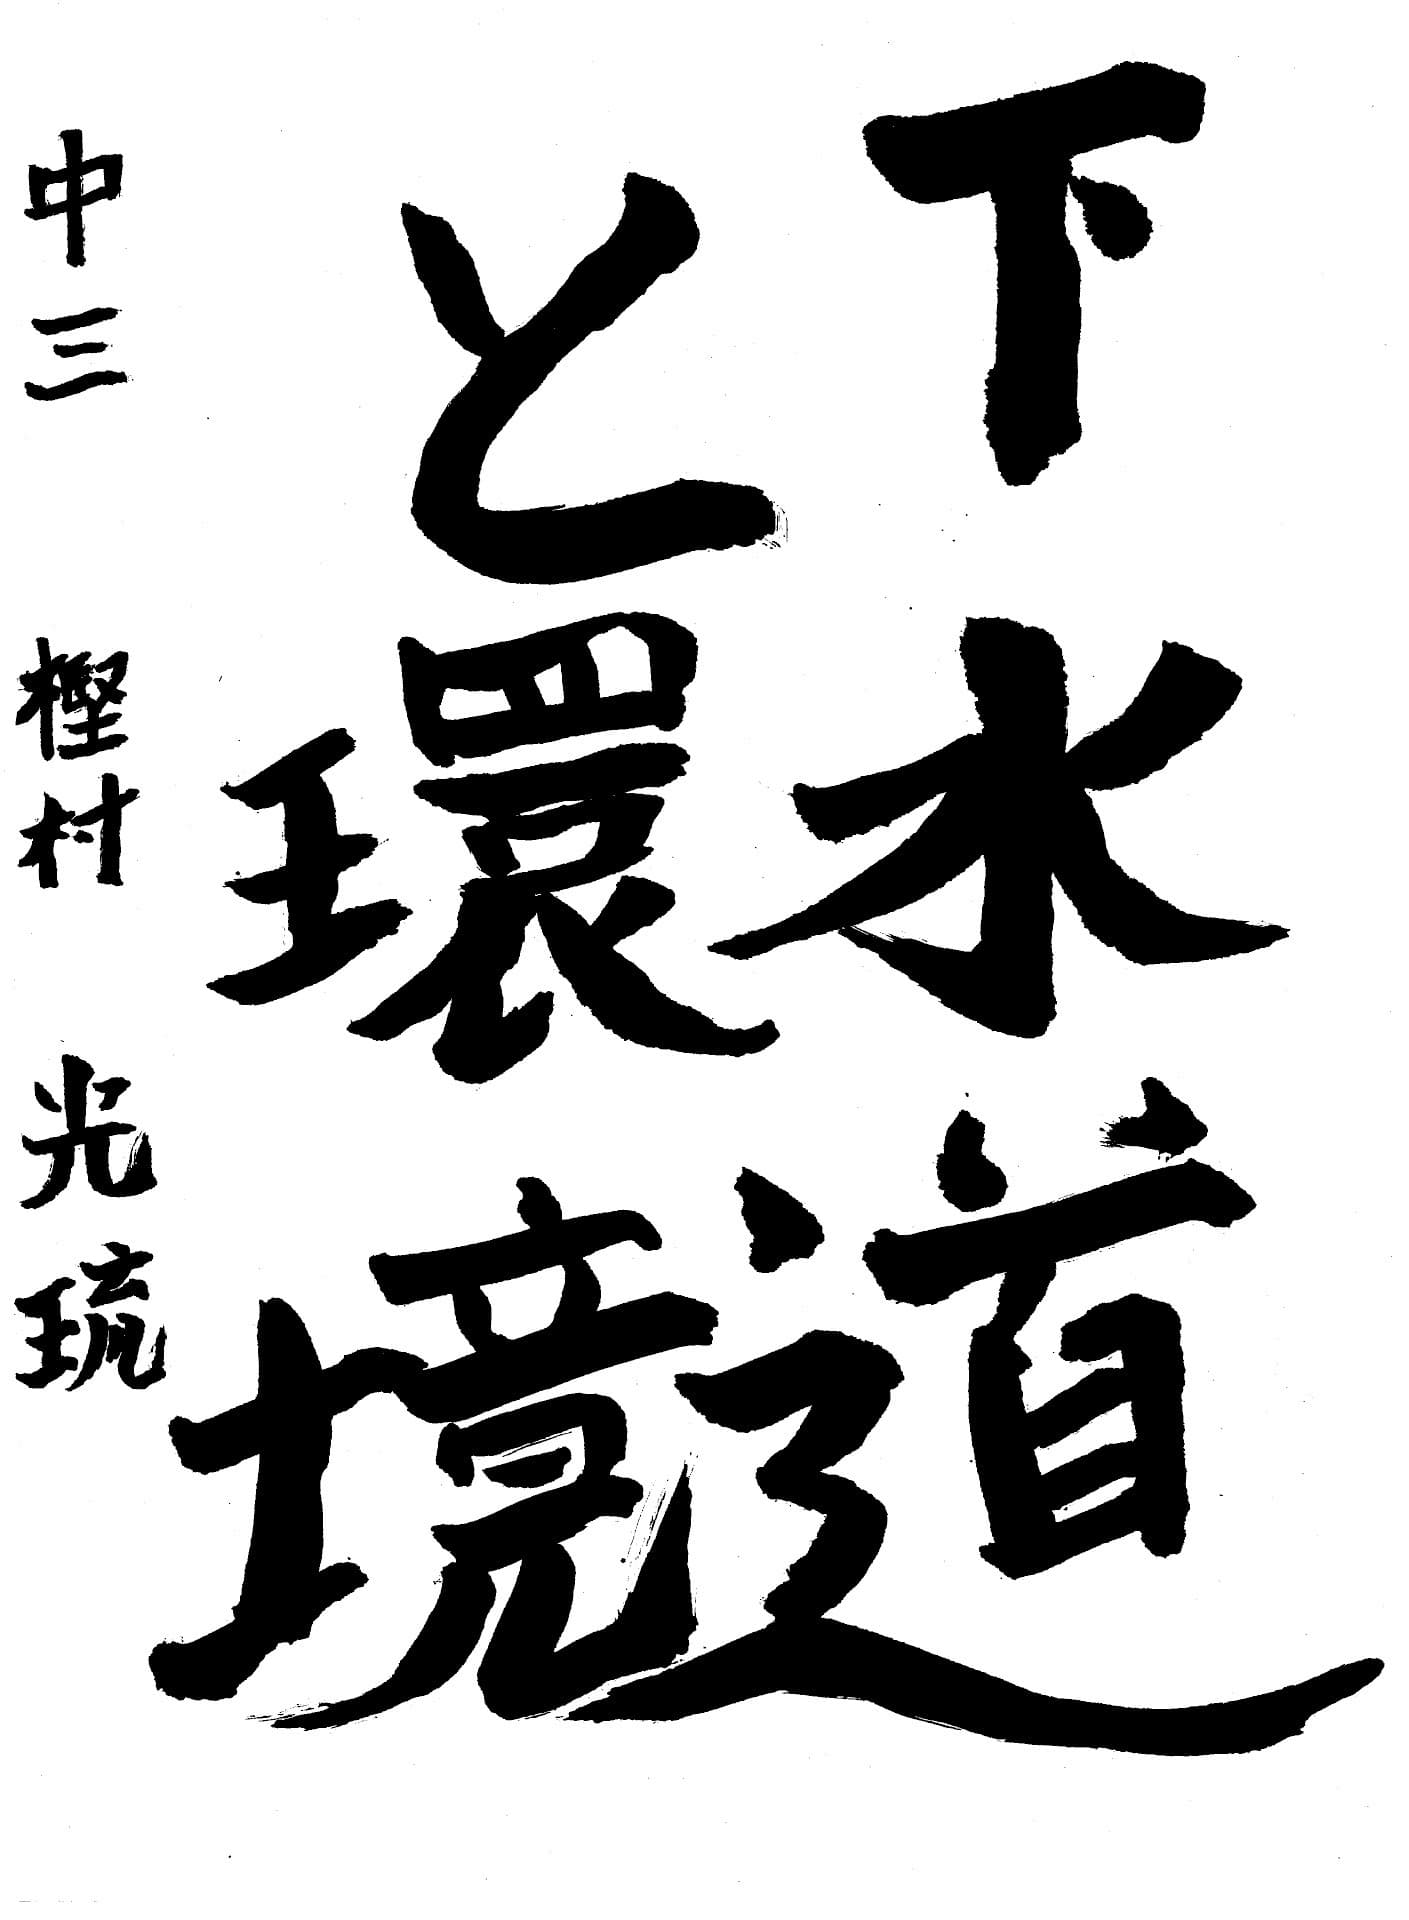 下水道
と環境
中三 樫村 光琉